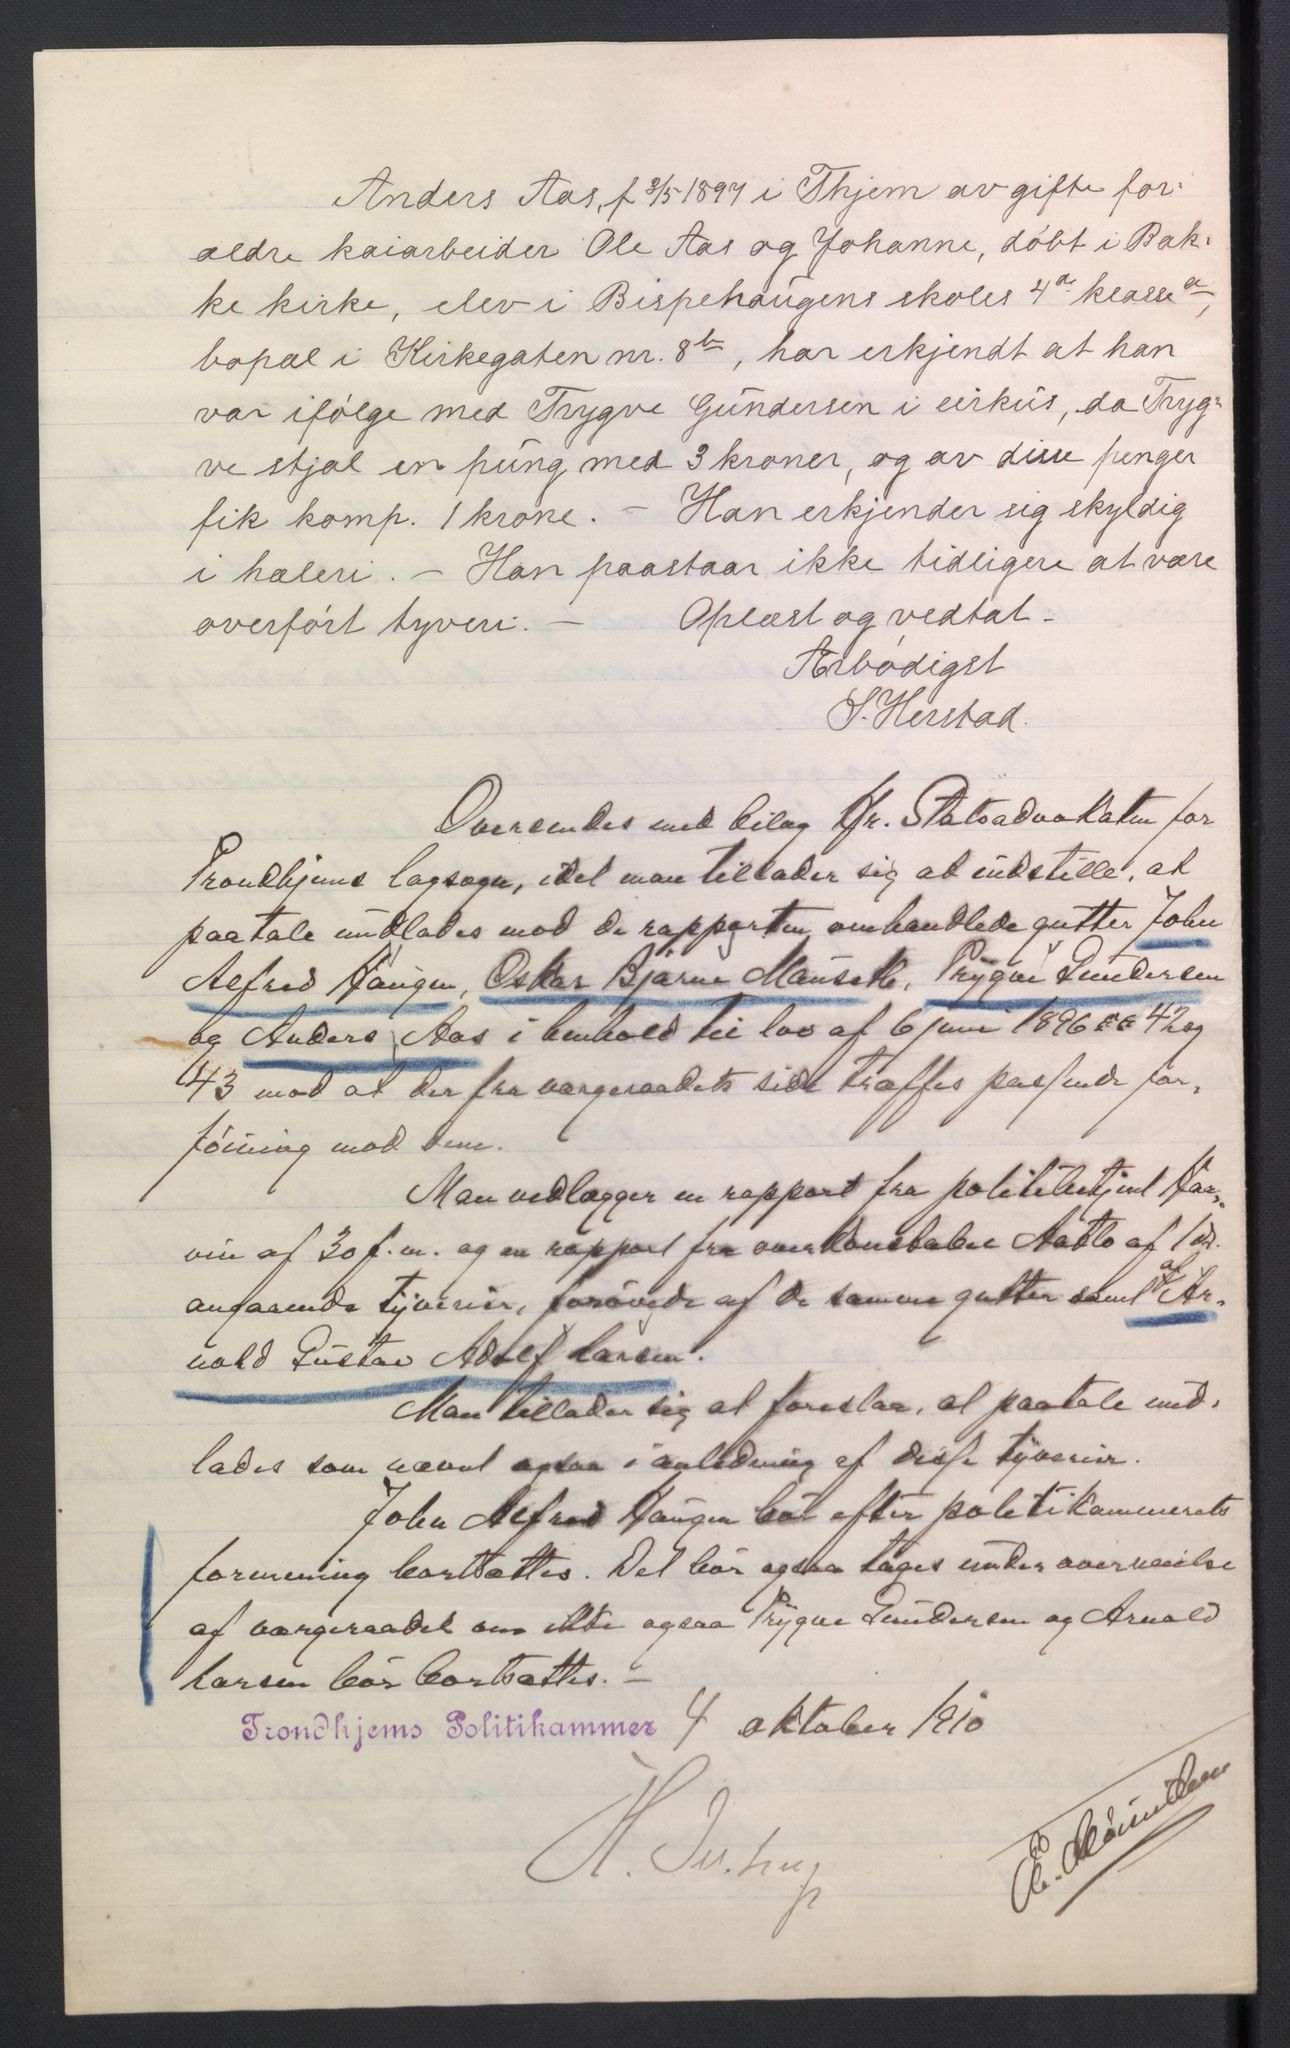 Anders Aas, f 3/5 1897 i Thjem av gifte for-
ældre kaiarbeider Ole Aas og Johanne, döbt i Bak-
ke kirke, elev i Bispehaugens skoles 4de klasse a,
bopæl i Kirkegaten nr. 8b, har erkjendt at han
var ifölge med Trygve Gundersen i cirkus, da Tryg-
ve stjal en pung med 3 kroner, og av disse penger
fik komp. 1 krone. - Han erkjender sig skyldig
i hæleri. - Han paastaar ikke tidligere at være
overfört tyveri. - Oplæst og vedtat -
Ærbödigst
S. Herstad.
Oversendes med bilag Hr. Statsadvokaten for
Trondhjems lagsogn, idet man tillader sig at indstille, at
paatale undlades mod de i rapporten omhandlede gutter John
Alfred Haugen, Oskar Bjarne Mauseth, Trygve Gundersen
og Anders Aas i henhold til lov af 6 juni 1896 §§ 42 og
43 mod at der fra vergeraadets side træffes passende for-
föining mod dem.
Man vedlægger en rapport fra politibetjent Kar-
vin af 30 f.m. og en rapport fra overkonstabel Aatlo af 1 ds.
angaaende tyverier, forövede af de samme gutter samt af Ar-
nold Gustav Adolf Larsen.
Man tillader sig at foreslaa, at paatale und-
lades som nævnt ogsaa i anledning af disse tyverier.
John Alfred Haugen bör efter politikammerets
formening bortsættes. Det bör ogsaa tages under overveielse
af vergeraadet om ikke ogsaa Trygve Gundersen og Arnold
Larsen bör bortsættes. -
Trondhjems Politikammer 4 oktober 1910